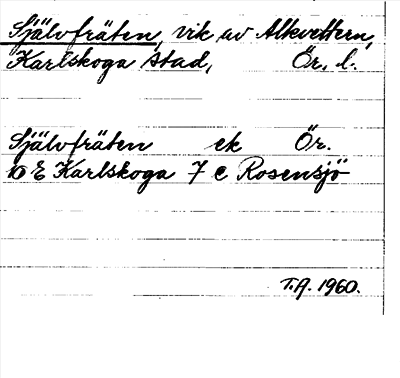 Självfräten, vik av Alkvettern,
Karlskoga stad, Ör. l.
Självfräten ek Ör.
10 E Karlskoga 7 c Rosensjö
T.A. 1960.